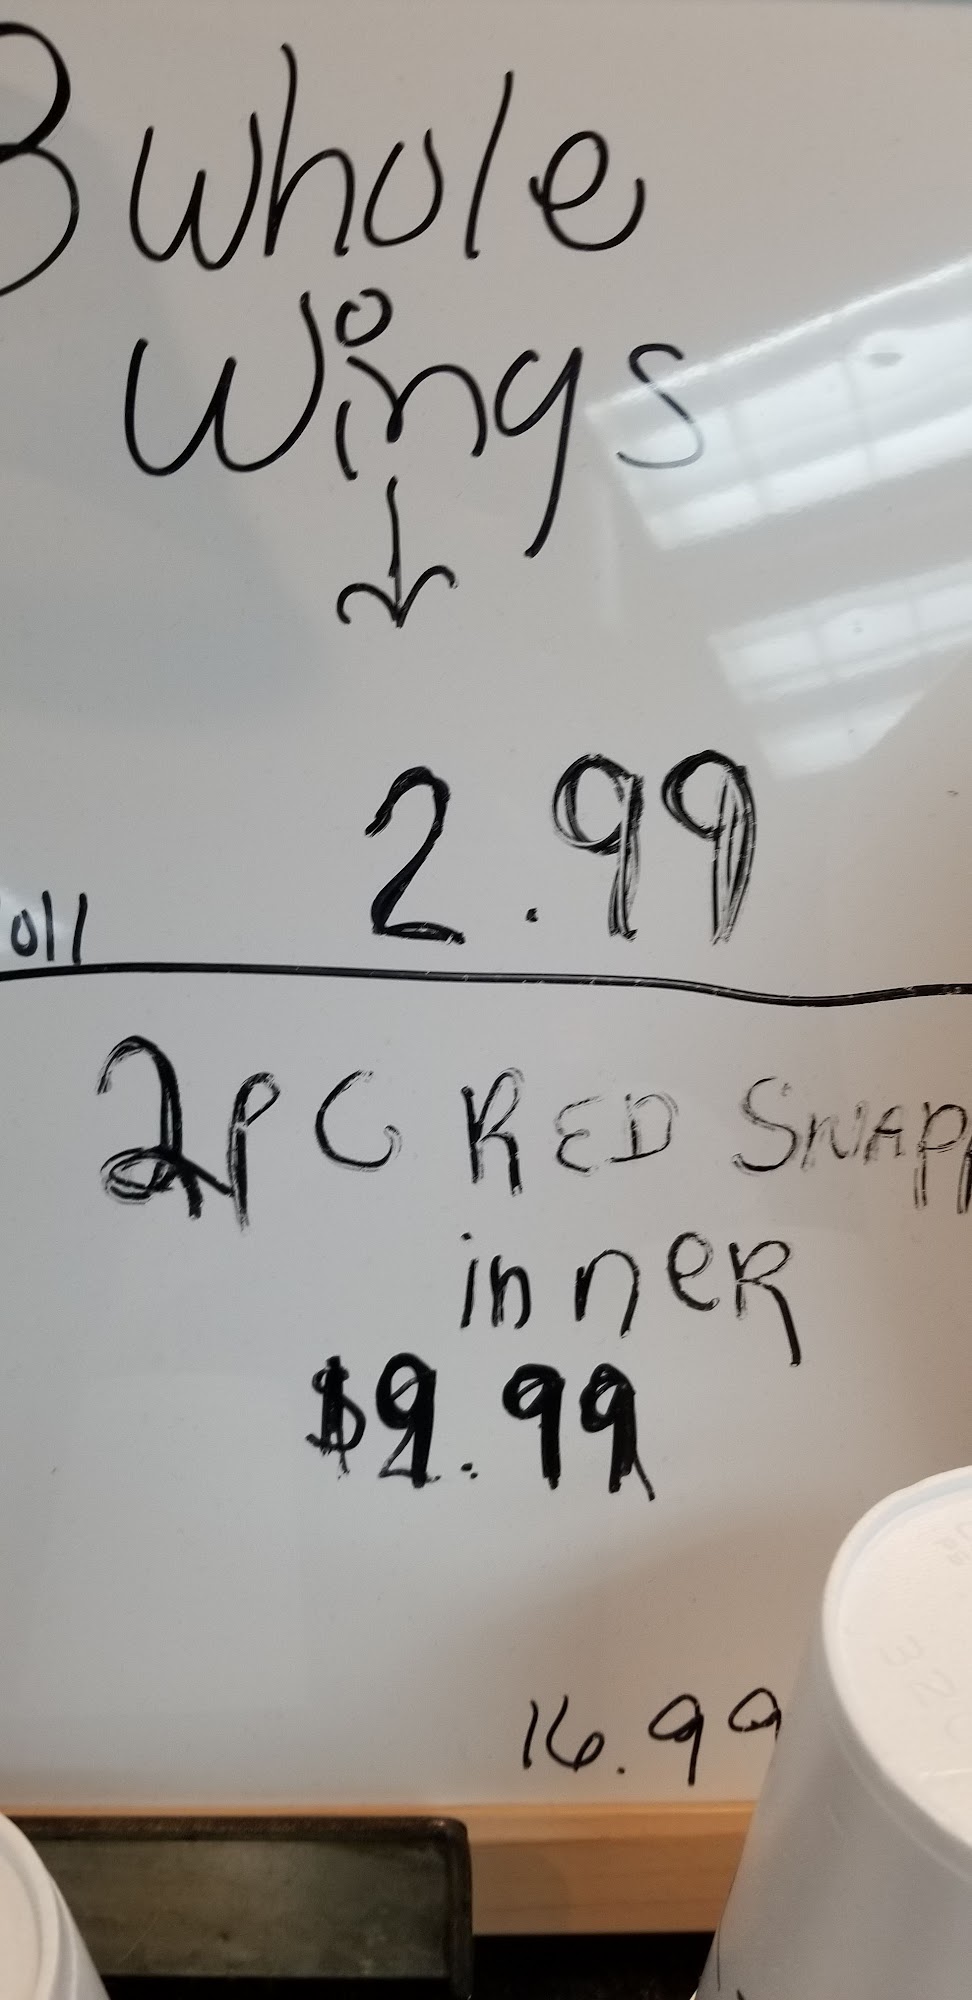 3 whole
Wings
2.99
oll
2PC RED SNAPP
inner
$9.99
16.99